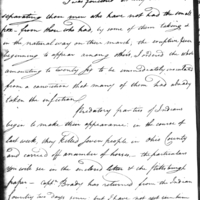 separating those men who have not had the small
pox from those who had, by some of them taking it
in the natural way on their march, the eruption
beginning to appear among other I inclined the whole
amounting to twenty five to be immediately inoculated
from a conviction that many of them had already
taken the infection.
Predatory parties of Indians
begin to make their appearance in the course of
last week, they killed seven people in Ohio County
and carried off a number of horses the particulars
you will see in the enclosed letter & the Pittsburgh
paper - Capt Brady has returned from the Indian
Country two days since but I have not